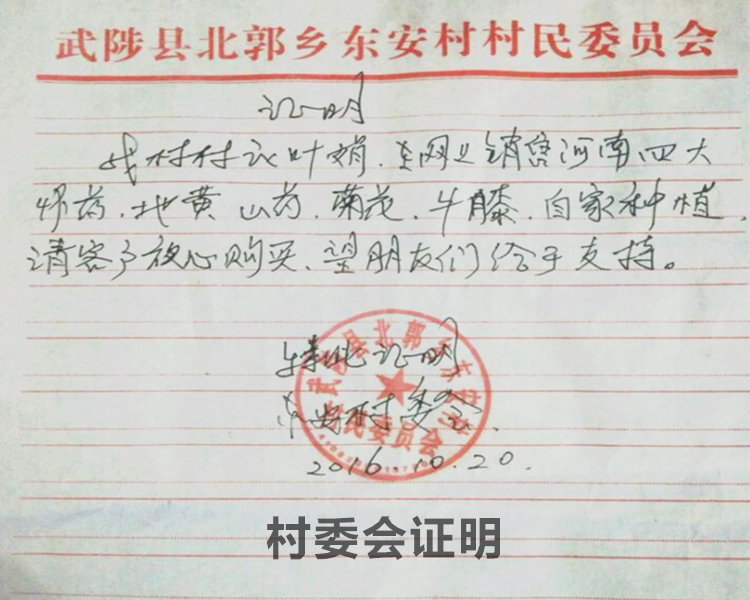 武陟县北郭乡东安村村民委员会
证明
我村村民叶娟，在网上销售河南四大
怀药，地黄，山药，菊花，牛膝，自家种植，
请客户放心购买，望朋友们给予支持。
特此证明
东安村委会.
2016.10.20.
武陟县北郭乡东安村
村民委员会
村委会证明